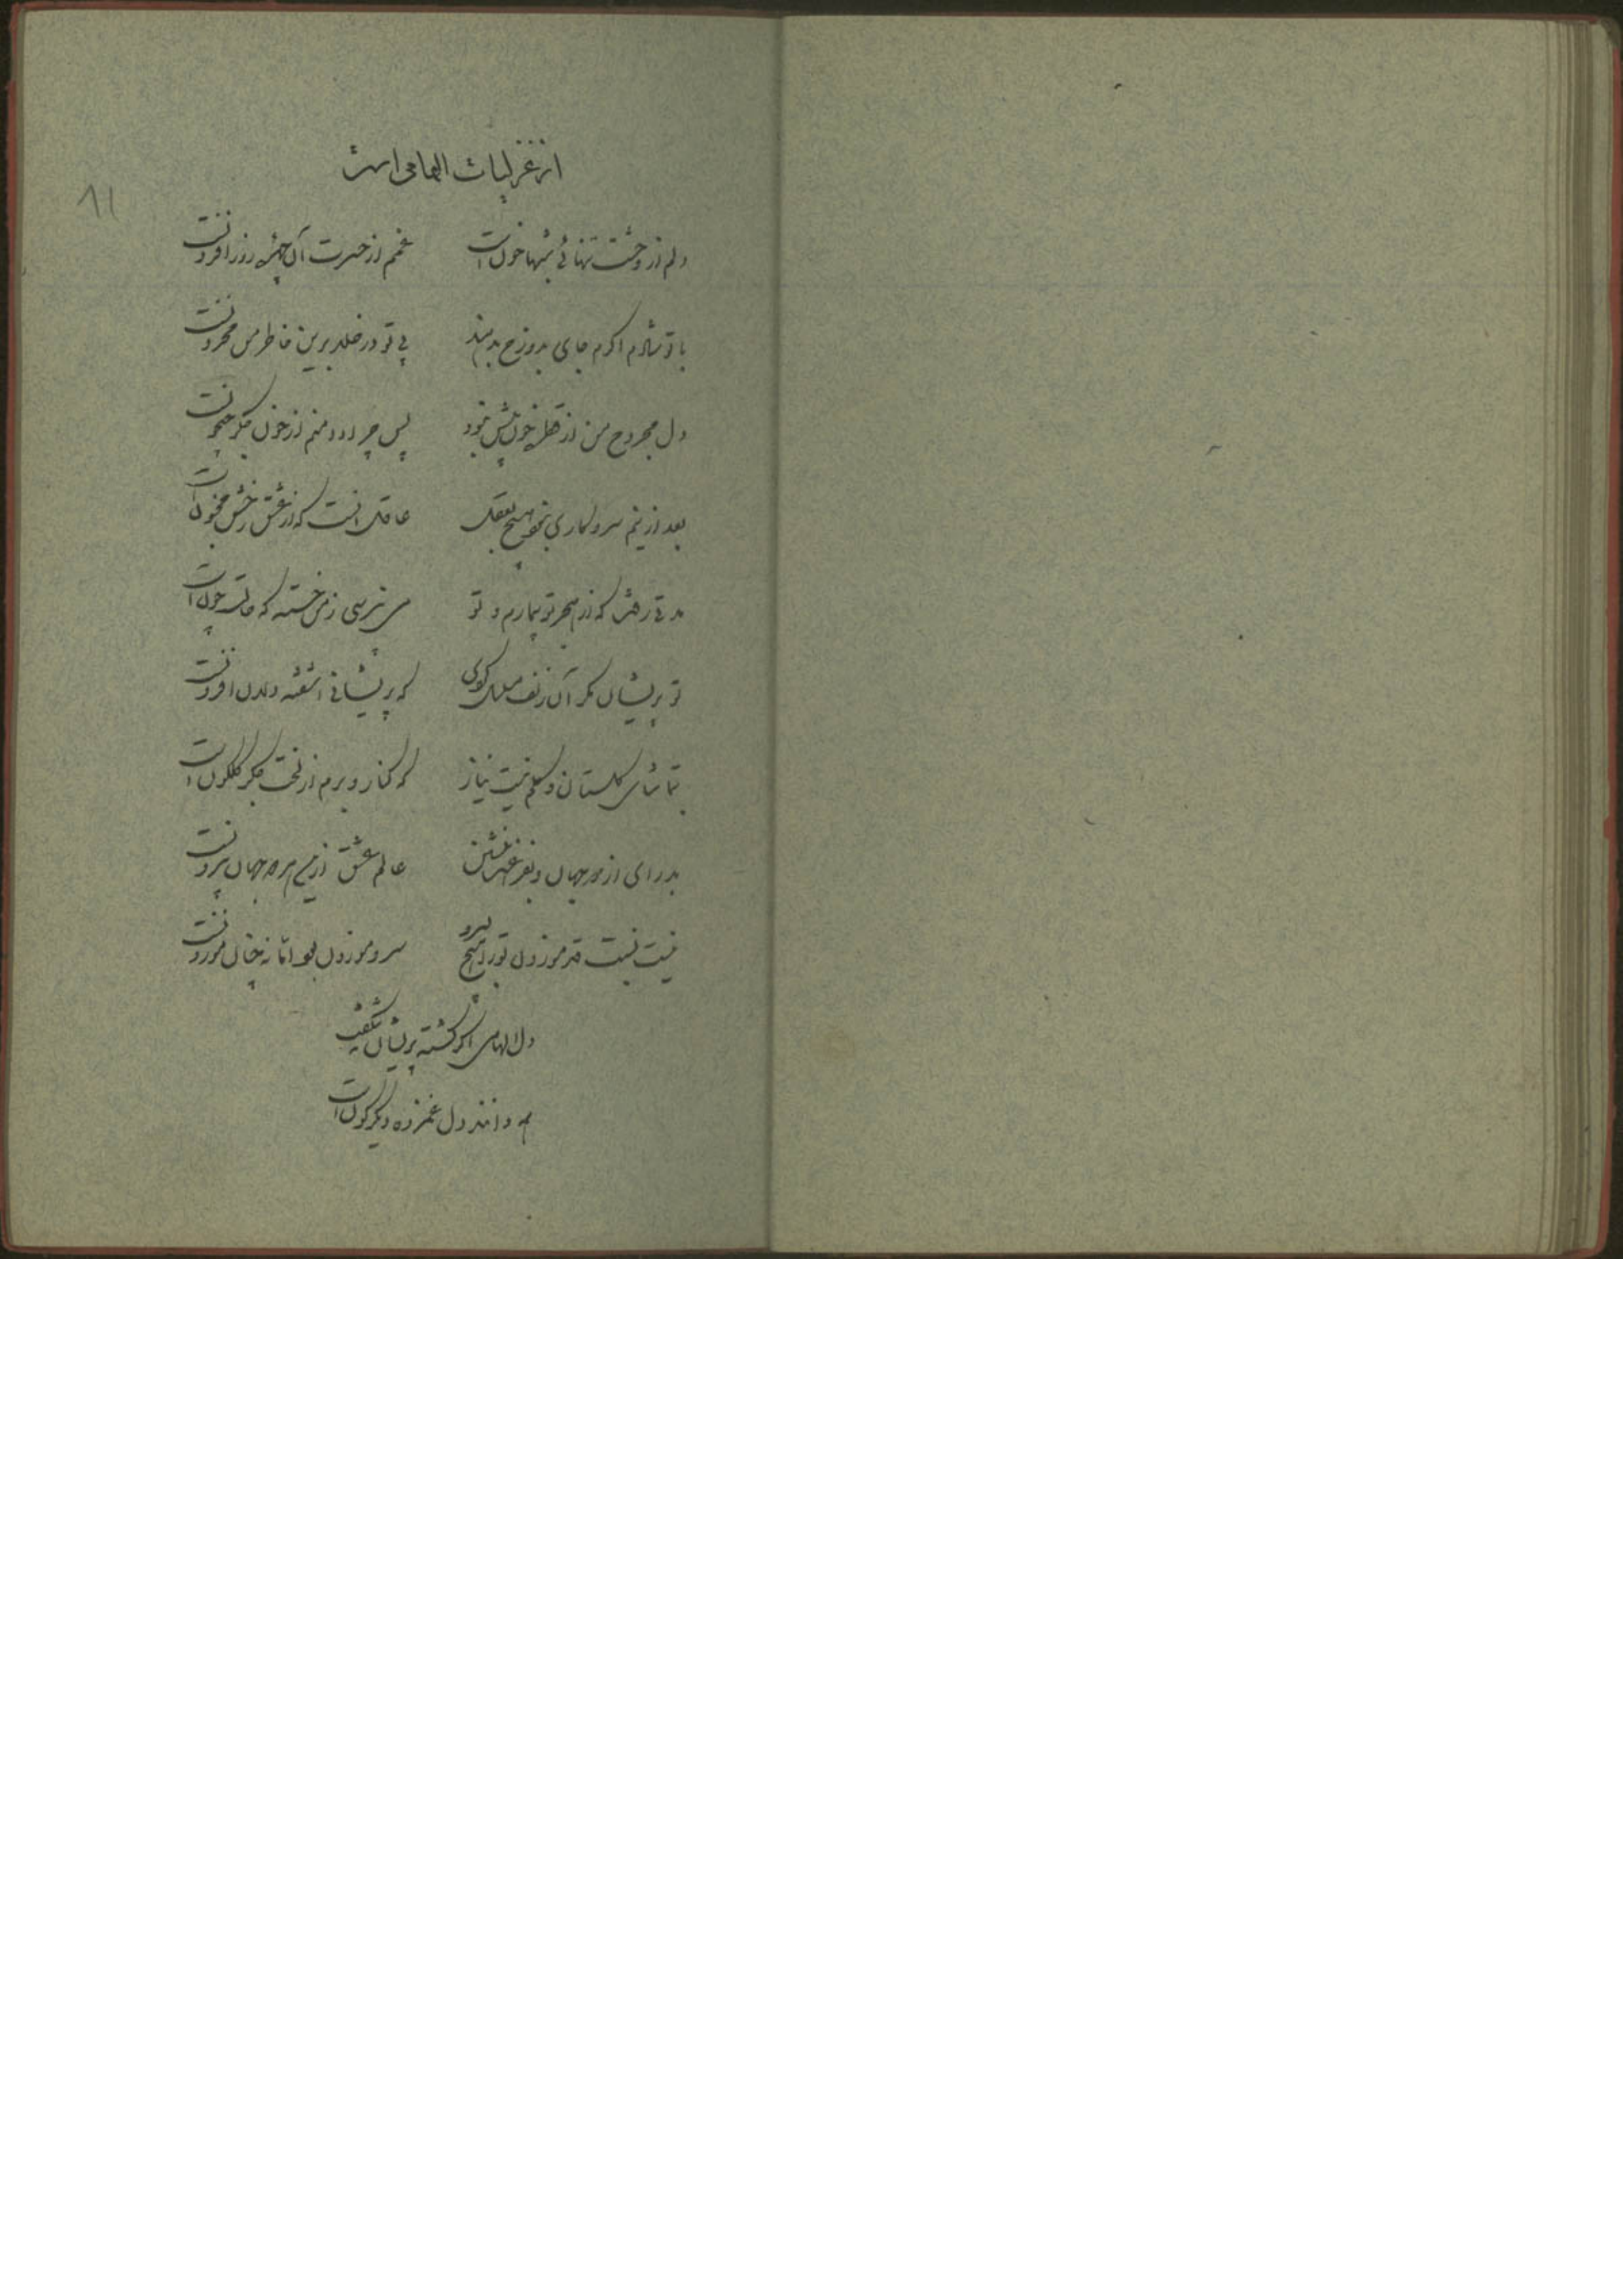 از غزلیات الهامی است
۸۱
دلم از وحشت تنهائی شبها خون است غمم از حسرت آن چهره روز افزونست
با تو شادم اگرم جای بدوزخ بدهند بی تو در خلد برین خاطر من محزونست
دل مجروح من از قطره خون بیش نبود پس چرا دامنم از خون جگر جیحونست
بعد ازینم سر و کاری نبود هیچ بعقل عاقل آنست که از عشق رخش مجنون است
مدتی رفت که از هجر تو بیمارم و تو می نپرسی ز من خسته که حالت چون است
تو پریشان مکن آن زلف مسلسل کوی که پریشانی آشفته دلان افزونست
بتماشای گلستان و گلم نیست نیاز که کنار و برم از لخت جگر گلگون است
بدرای از دو جهان و نفر عشق عالم عشق ازین هر دو جهان بیرونست
نیست نسبت قد موزون تو را هیچ بسرو سرو موزون بود اما نه چنان موزونست
دل الهامی اگر گشته پریشان نه شگفت
همه دانند دل غمزده دیگرگون است